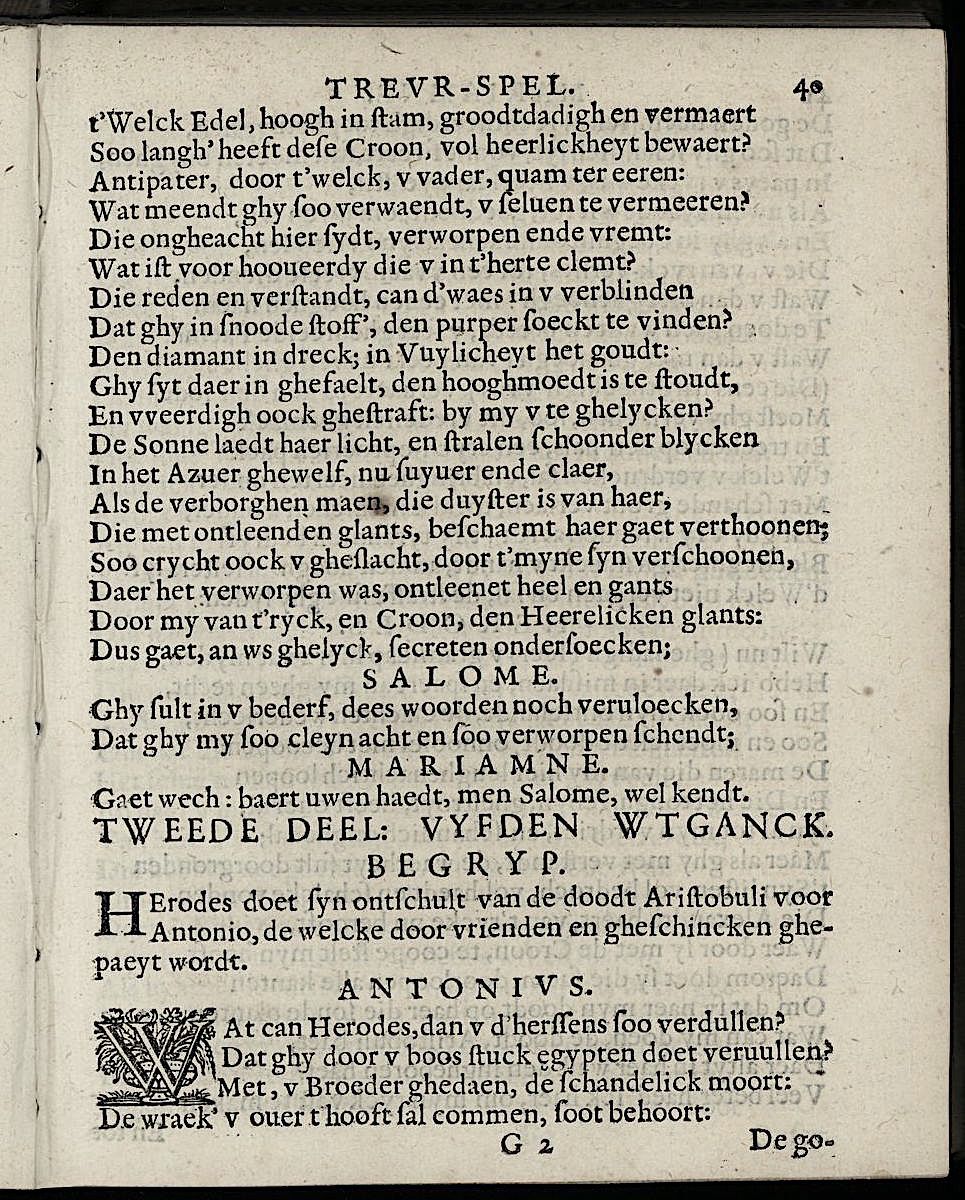 TREVR-SPEL. 40
t'Welck Edel, hoogh in ſtam, groodtdadigh en vermaert
Soo langh' heeft deſe Croon, vol heerlickheyt bewaert?
Antipater, door t'welck, v vader, quam ter eeren:
Wat meendt ghy ſoo verwaendt, v ſeluen te vermeeren?
Die ongheacht hier ſydt, verworpen ende vremt:
Wat iſt voor hooueerdy die v in t'herte clemt?
Die reden en verſtandt, can d'waes in v verblinden
Dat ghy in ſnoode ſtoff', den purper ſoeckt te vinden?
Den diamant in dreck; in Vuylicheyt het goudt:
Ghy ſyt daer in ghefaelt, den hooghmoedt is te ſtoudt,
En vveerdigh oock gheſtraft: by my v te ghelycken?
De Sonne laedt haer licht, en ſtralen ſchoonder blycken
In het Azuer ghewelf, nu ſuyuer ende claer,
Als de verborghen maen, die duyſter is van haer,
Die met ontleenden glants, beſchaemt haer gaet verthoonen;
Soo crycht oock v gheſlacht, door t'myne ſyn verſchoonen,
Daer het verworpen was, ontleenet heel en gants
Door my van t'ryck, en Croon, den Heerelicken glants:
Dus gaet, an ws ghelyck, ſecreten onderſoecken;
SALOME.
Ghy ſult in v bederf, dees woorden noch veruloecken,
Dat ghy my ſoo cleyn acht en ſoo verworpen ſchendt;
MARIAMNE.
Gaet wech: baert uwen haedt, men Salome, wel kendt.
TWEEDE DEEL: VYFDEN WTGANCK.
BEGRYP.
HErodes doet ſyn ontſchult van de doodt Ariſtobuli voor
Antonio, de welcke door vrienden en gheſchincken ghe-
paeyt wordt.
ANTONIVS.
WAt can Herodes, dan v d'herſſens ſoo verdullen?
Dat ghy door v boos ſtuck ęgypten doet veruullen?
Met, v Broeder ghedaen, de ſchandelick moort:
De wraek' v ouer t'hooft ſal commen, ſoot behoort:
G 2 De go-